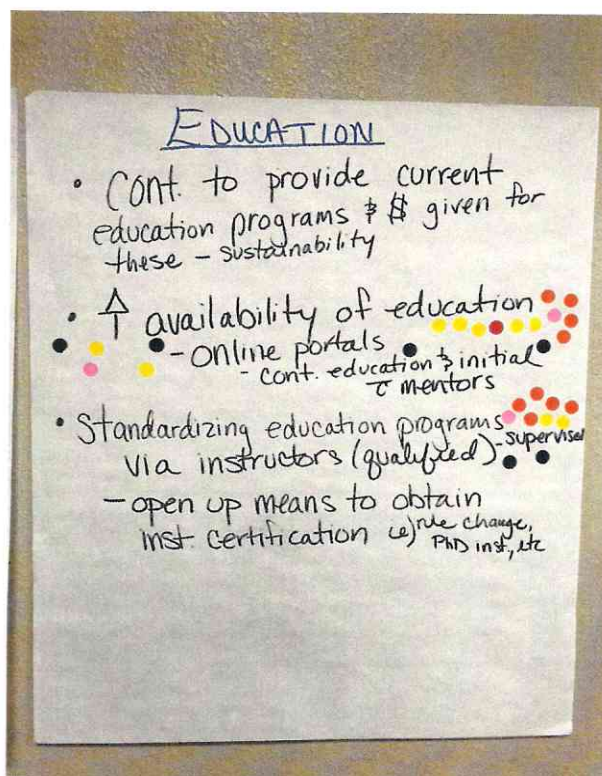 EDUCATION
• Cont. to provide current
education programs & $ given for
these - sustainability
• ↑ availability of education
- online portals
- cont. education & initial
c̄ mentors
• Standardizing education programs
via instructors (qualified) - supervised
- open up means to obtain
inst. certification ie) rule change,
PhD inst, etc